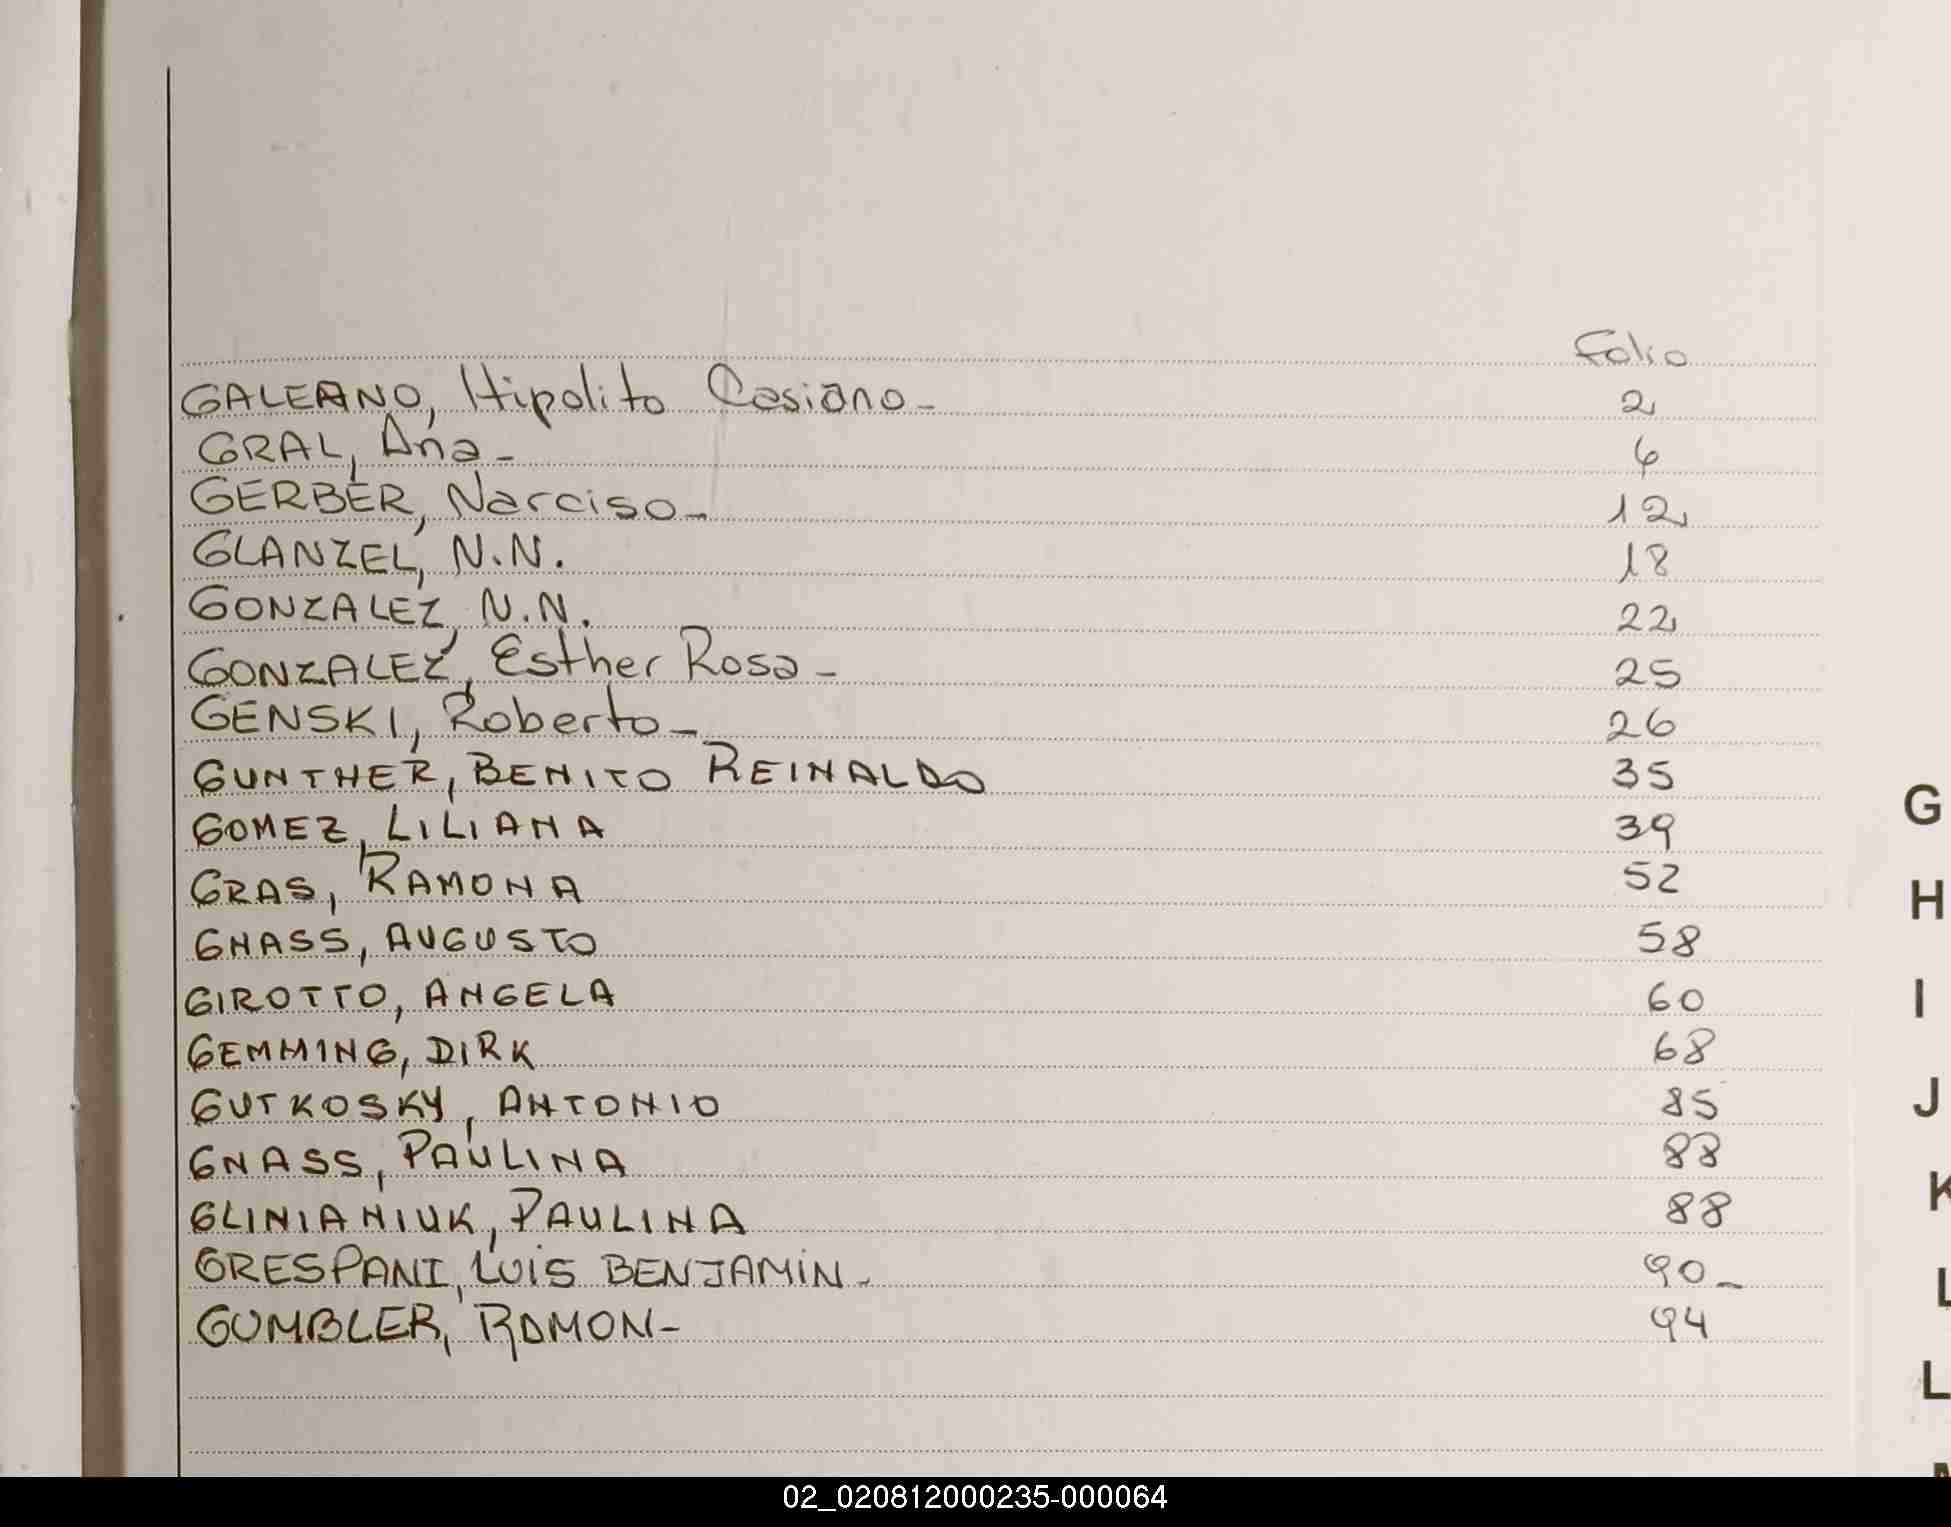 Folio
GALEANO, Hipolito Casiano - 2
GRAL, Ana - 6
GERBER, Narciso - 12
GLANZEL, N.N. 18
GONZALEZ, N.N. 22
GONZALEZ, Esther Rosa - 25
GENSKI, Roberto - 26
GUNTHER, BENITO REINALDO 35
GOMEZ, LILIANA 39
GRAS, RAMONA 52
GNASS, AUGUSTO 58
GIROTTO, ANGELA 60
GEMMING, DIRK 68
GUTKOSKY, ANTONIO 85
GNASS, PAULINA 88
GLINIANIUK, PAULINA 88
GRESPANI, LUIS BENJAMIN - 90 -
GUMBLER, RAMON - 94
G
H
I
J
K
L
L
02_020812000235-000064